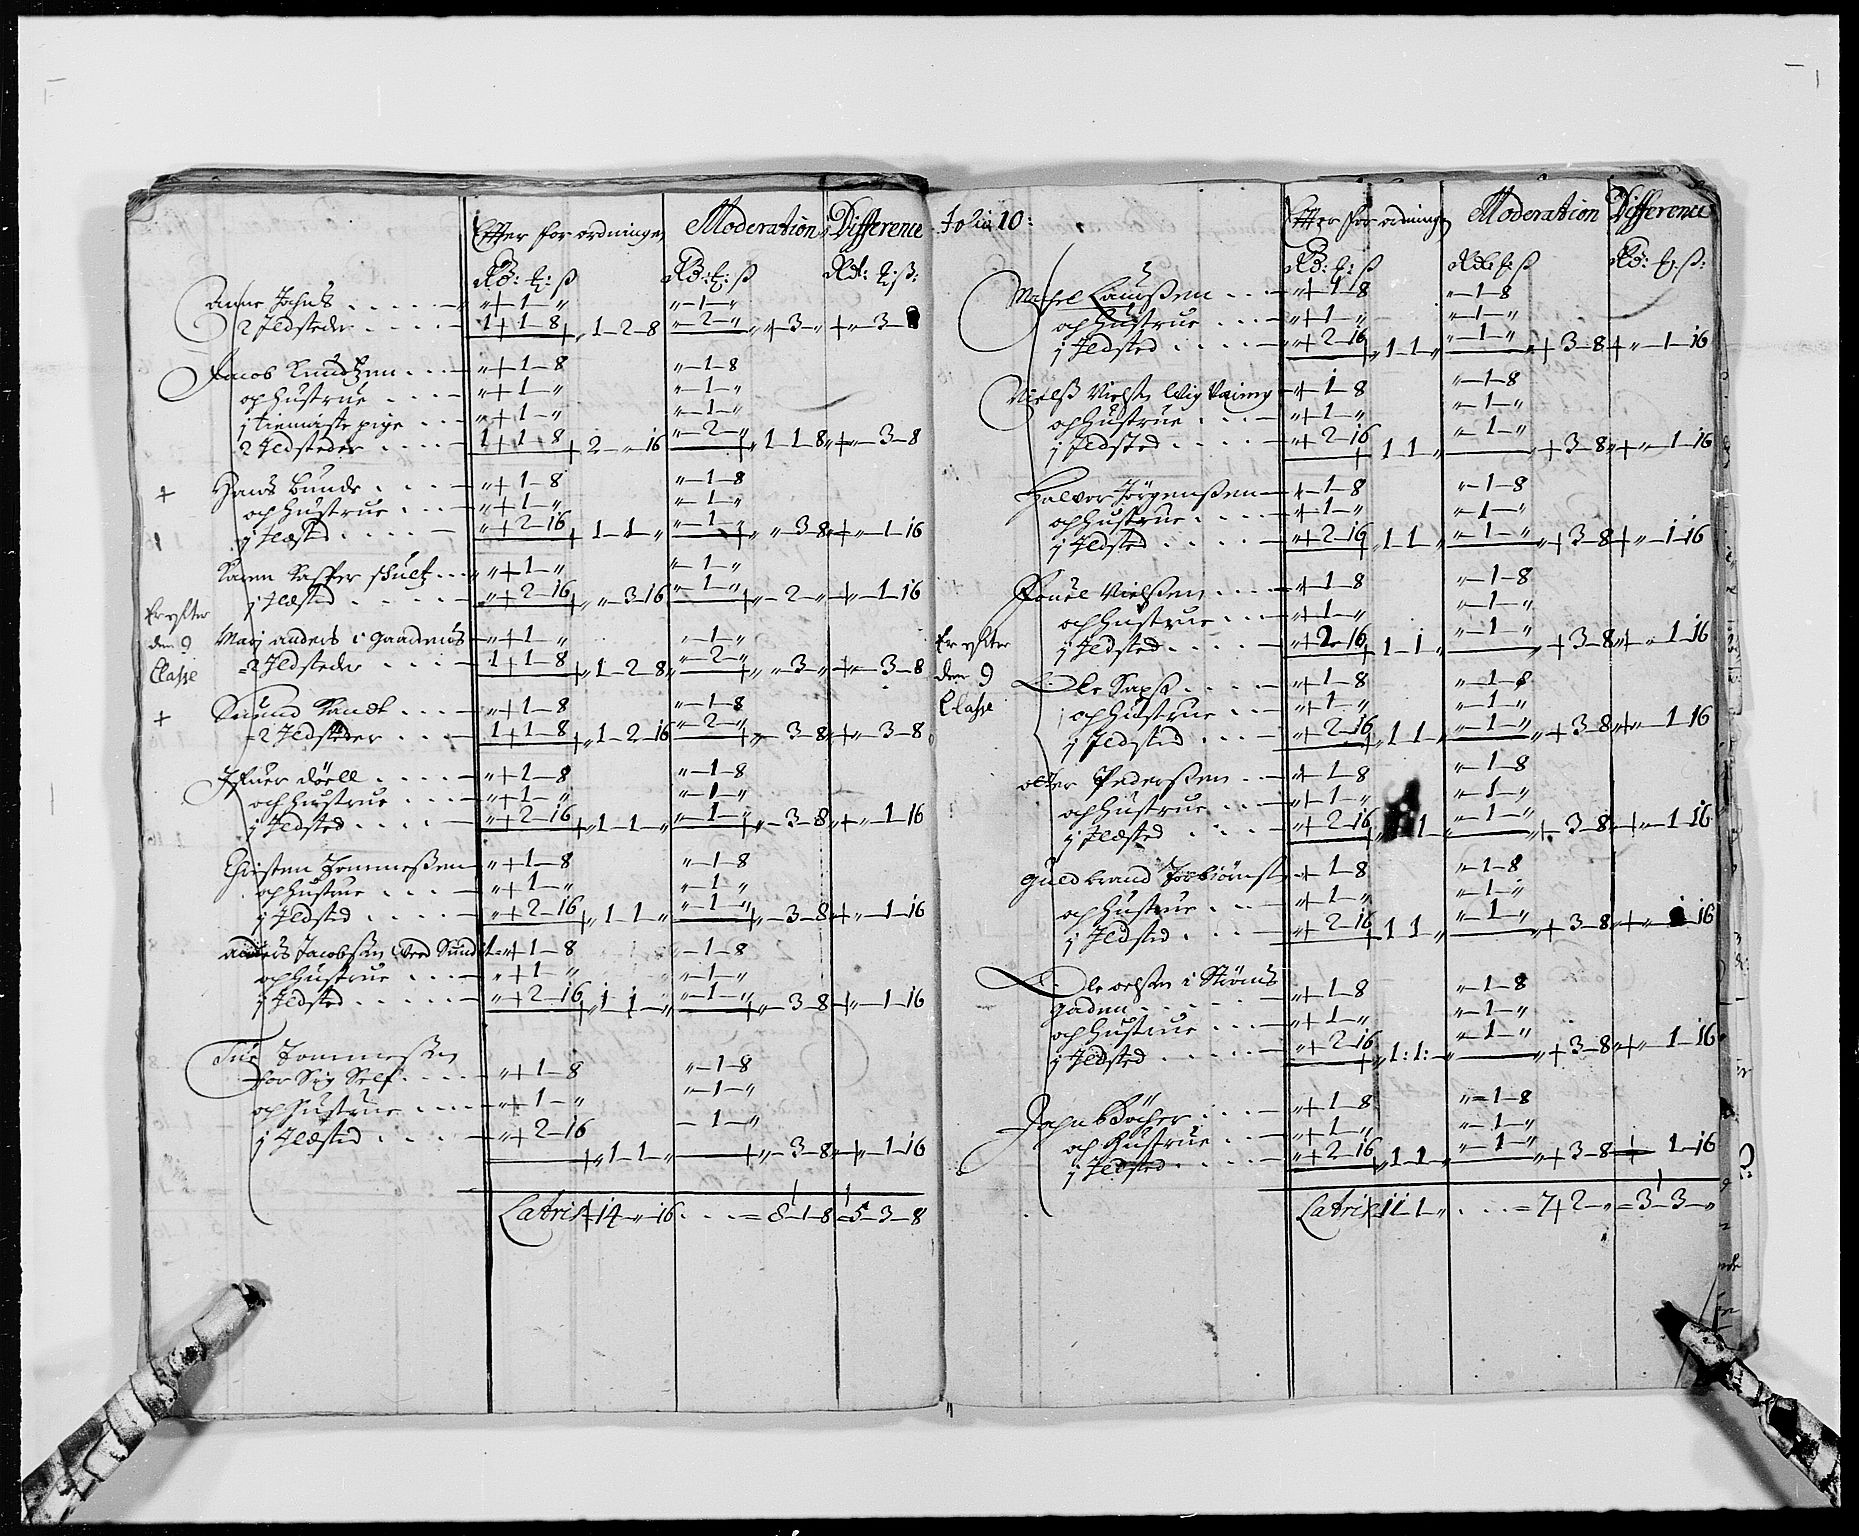 Efter forordningen Moderation Difference
Rd: ț: ß Rd: ț: ß Rd: ț: ß:
Anne Jahns . . . . . „+1–„ „–1–„
2 Ildsteder . . . . 1+1–8+„1–2–8 „–2–„ „+3–„ +„–3–8
Jacob Knudtzen . . . „+1–8 „–1–8
och hustrue . . . „+1–„ „–1–„
j tienniste pige . . . „+1–„ „–1–„
2 Ildsteder . . . . 1+1–8+2–„16 „–2–„+„1–1–8„+„–3–8
+ Hans Bunde . . . „+1–8 „–1–8
och hustrue . . . „+1–„ „–1–„
j Ildsted . . . . „+2–16+1–1–„ „–1–„+„–3–8„+„–1–16
Karen Kasper skult . . . „+1–„ „–1–„
j Ildsted . . . . „+2–16+„–3–16 „–1–„+„–2–„+„–1–16
Er ȷfter
den 9
Classe
Mari anders i gaardens „+1–„ „–1–„
2 Ildsteder . . . . 1+1–8+„1–2–8„ „–2–„+„–3–„+„–3–8
+ Suend Randt . . . „+1–8 „–1–8
2 Ildsteder . . . 1+1–8+„1–2–16 „–2–„+„–3–8„+„–3–8
Ifuer Röell . . . . „+1–8 „–1–8
och hustrue . . . „+1–„ „–1–„
j Ildsted . . . . „+2–16+„1–1–„ „–1–„+„–3–8„+„–1–16
Christen Tommeßen „+1–8 „–1–8
och hustrue . . . „+1–„ „–1–„
j Ildsted . . . . „+2–16+„1–1–„ „–1–„+„–3–8+„–1–16
anders Jacobsen Ved Sundet „+1–8 „–1–8
och hustrue . . . „+1–„ „–1–„
j Ildsted . . . . . „+2–16+„1–1–„ „–1–„+„–3–8+„–1–16
Tommeßen
for Sig Self . . . . „+1–8 „–1–8
och hustrue . . . . „+1–„ „–1–„
j Ildsted . . . . „+2–16 –1–„
+„1–1–„ +„–3–8„+„–1–16
Latris+14–„16 . . . =8–1–8=5–3–8
Folio 10:
Efter forordningen Moderation Difference
Rd: ț: ß Rd: ț: ß Rd: ț: ß:
Michel Laurßen . . . „+1–8 „–1–8
och hustrue . . . „+1–„ „–1–„
j Ildsted . . . . „+2–16+„1–1–„ „–1–„ „+3–8+„–1–16
Nielß Nielsen „+1–8 „–1–8
och hustrue . . . „+1–„ „–1–„
j Ildsted . . . „+2–16+1–1–„ „–1–„ „+3–8„+„–1–16
Halvor Jörgenßen „+1–8 „–1–8
och hustrue . . . „+1–„ „–1–„
j Ildsted . . . . „+2–16+„1–1–„ „–1–„ „+3–8+„–1–16
Pouel Nielßen . . . . „+1–8 „–1–8
och hustrue . . . „+1–„ „–1–„
j Ildsted . . . . „+2–16+1–1–„ „–1–„ „+3–8„+„–1–16
Er ȷfter
den 9
Classe
Ole . . . . „+1–8 „–1–8
och hustrue . . . „+1–„ „–1–„
j Ildsted . . . „+2–16+„1–1–„ „–1–„ „+3–8„+„–1–16
Pederßen . . „+1–8 „–1–8
och hustrue . . . „+1–„ „–1–„
j Ildsted . . . . „+2–16+„1–1–„ „–1–„ „+3–8„+„–1–16
Guldbrand Torbiörns „+1–8 „–1–8
och hustrue . . . „+1–„ „–1–„
j Ildsted . . . . „+2–16+1–1–„ „–1–„ „+3–8„+„–1–16
Ole olsen i Ströms
gaden . . . . „+1–8 „–1–8
och hustrue . . . „+1–„ „–1–„
j Ildsted . . . . . „+2–16+„1:1:–„ „–1–„ „+3–8„+„–1–16
Jahn Böcher . . . „+1–8 „=1–8
och hustrue . . . „+1–„ „–1–„
j Ildsted . . . . „+2–16+„1–1–„ „–1–„ „+3–8+1–16
Latris+11–1–„ . . . =7+2–„=3–3–„